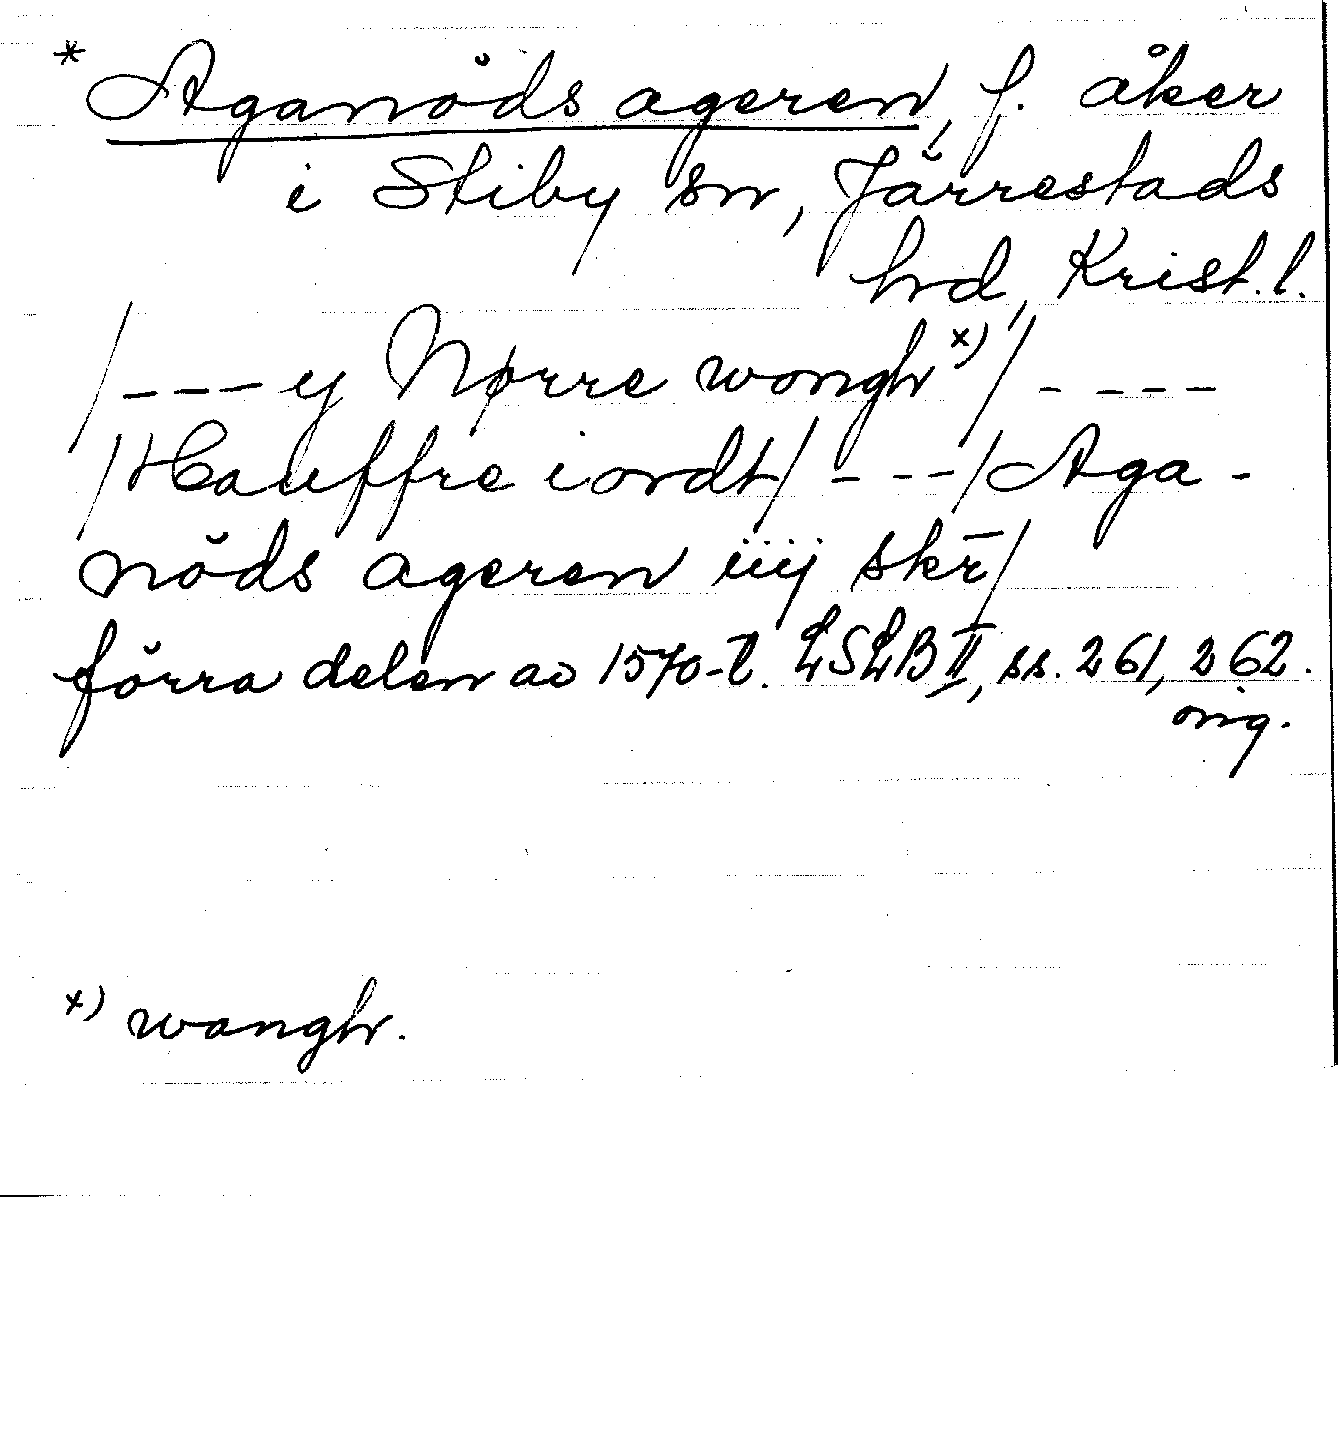 * Aganöds ageren, f. åker
i Stiby sn, Järrestads
hd, Krist. l.
/---y Nørre wongh x)/ ----
/Hauffre iordt/ ---/Aga-
nöds ageren iiij skr̄/
förra delen av 1570-t. LSLB II, ss. 261, 262.
orig.
x) wangh.